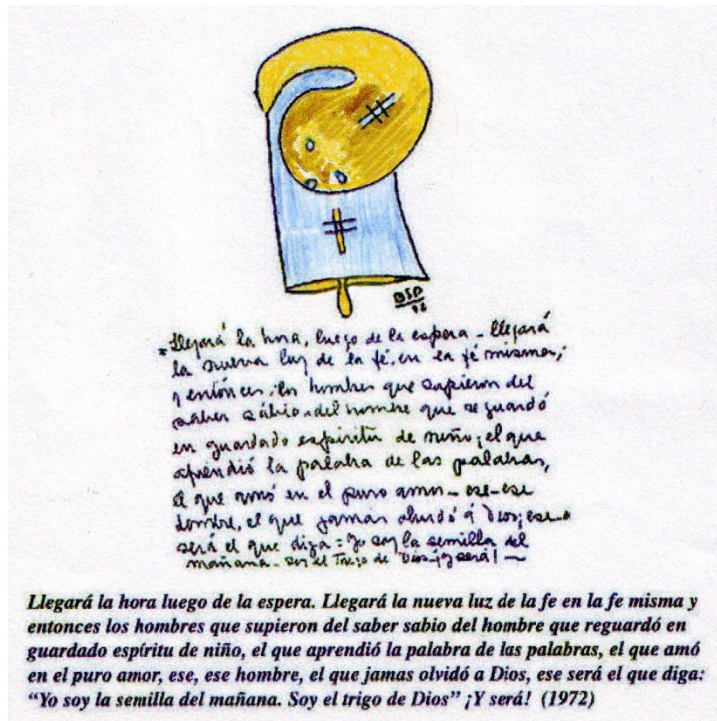 BSP
72
"Llegará la hora, luego de la espera - llegará
la nueva luz de la fé, en la fé misma,
y entónces, los hombres que supieron del
saber sábio, del hombre que se guardó
en guardado espíritu de niño; el que
aprendió la palabra de las palabras,
el que amó en el puro amor - ese - ese
hombre, el que jamás olvidó á Dios; ese -
será el que diga = Yo soy la semilla del
mañana - soy el Trigo de Dios - ¡y será! -
Llegará la hora luego de la espera. Llegará la nueva luz de la fe en la fe misma y
entonces los hombres que supieron del saber sabio del hombre que reguardó en
guardado espíritu de niño, el que aprendió la palabra de las palabras, el que amó
en el puro amor, ese, ese hombre, el que jamas olvidó a Dios, ese será el que diga:
“Yo soy la semilla del mañana. Soy el trigo de Dios” ¡Y será! (1972)